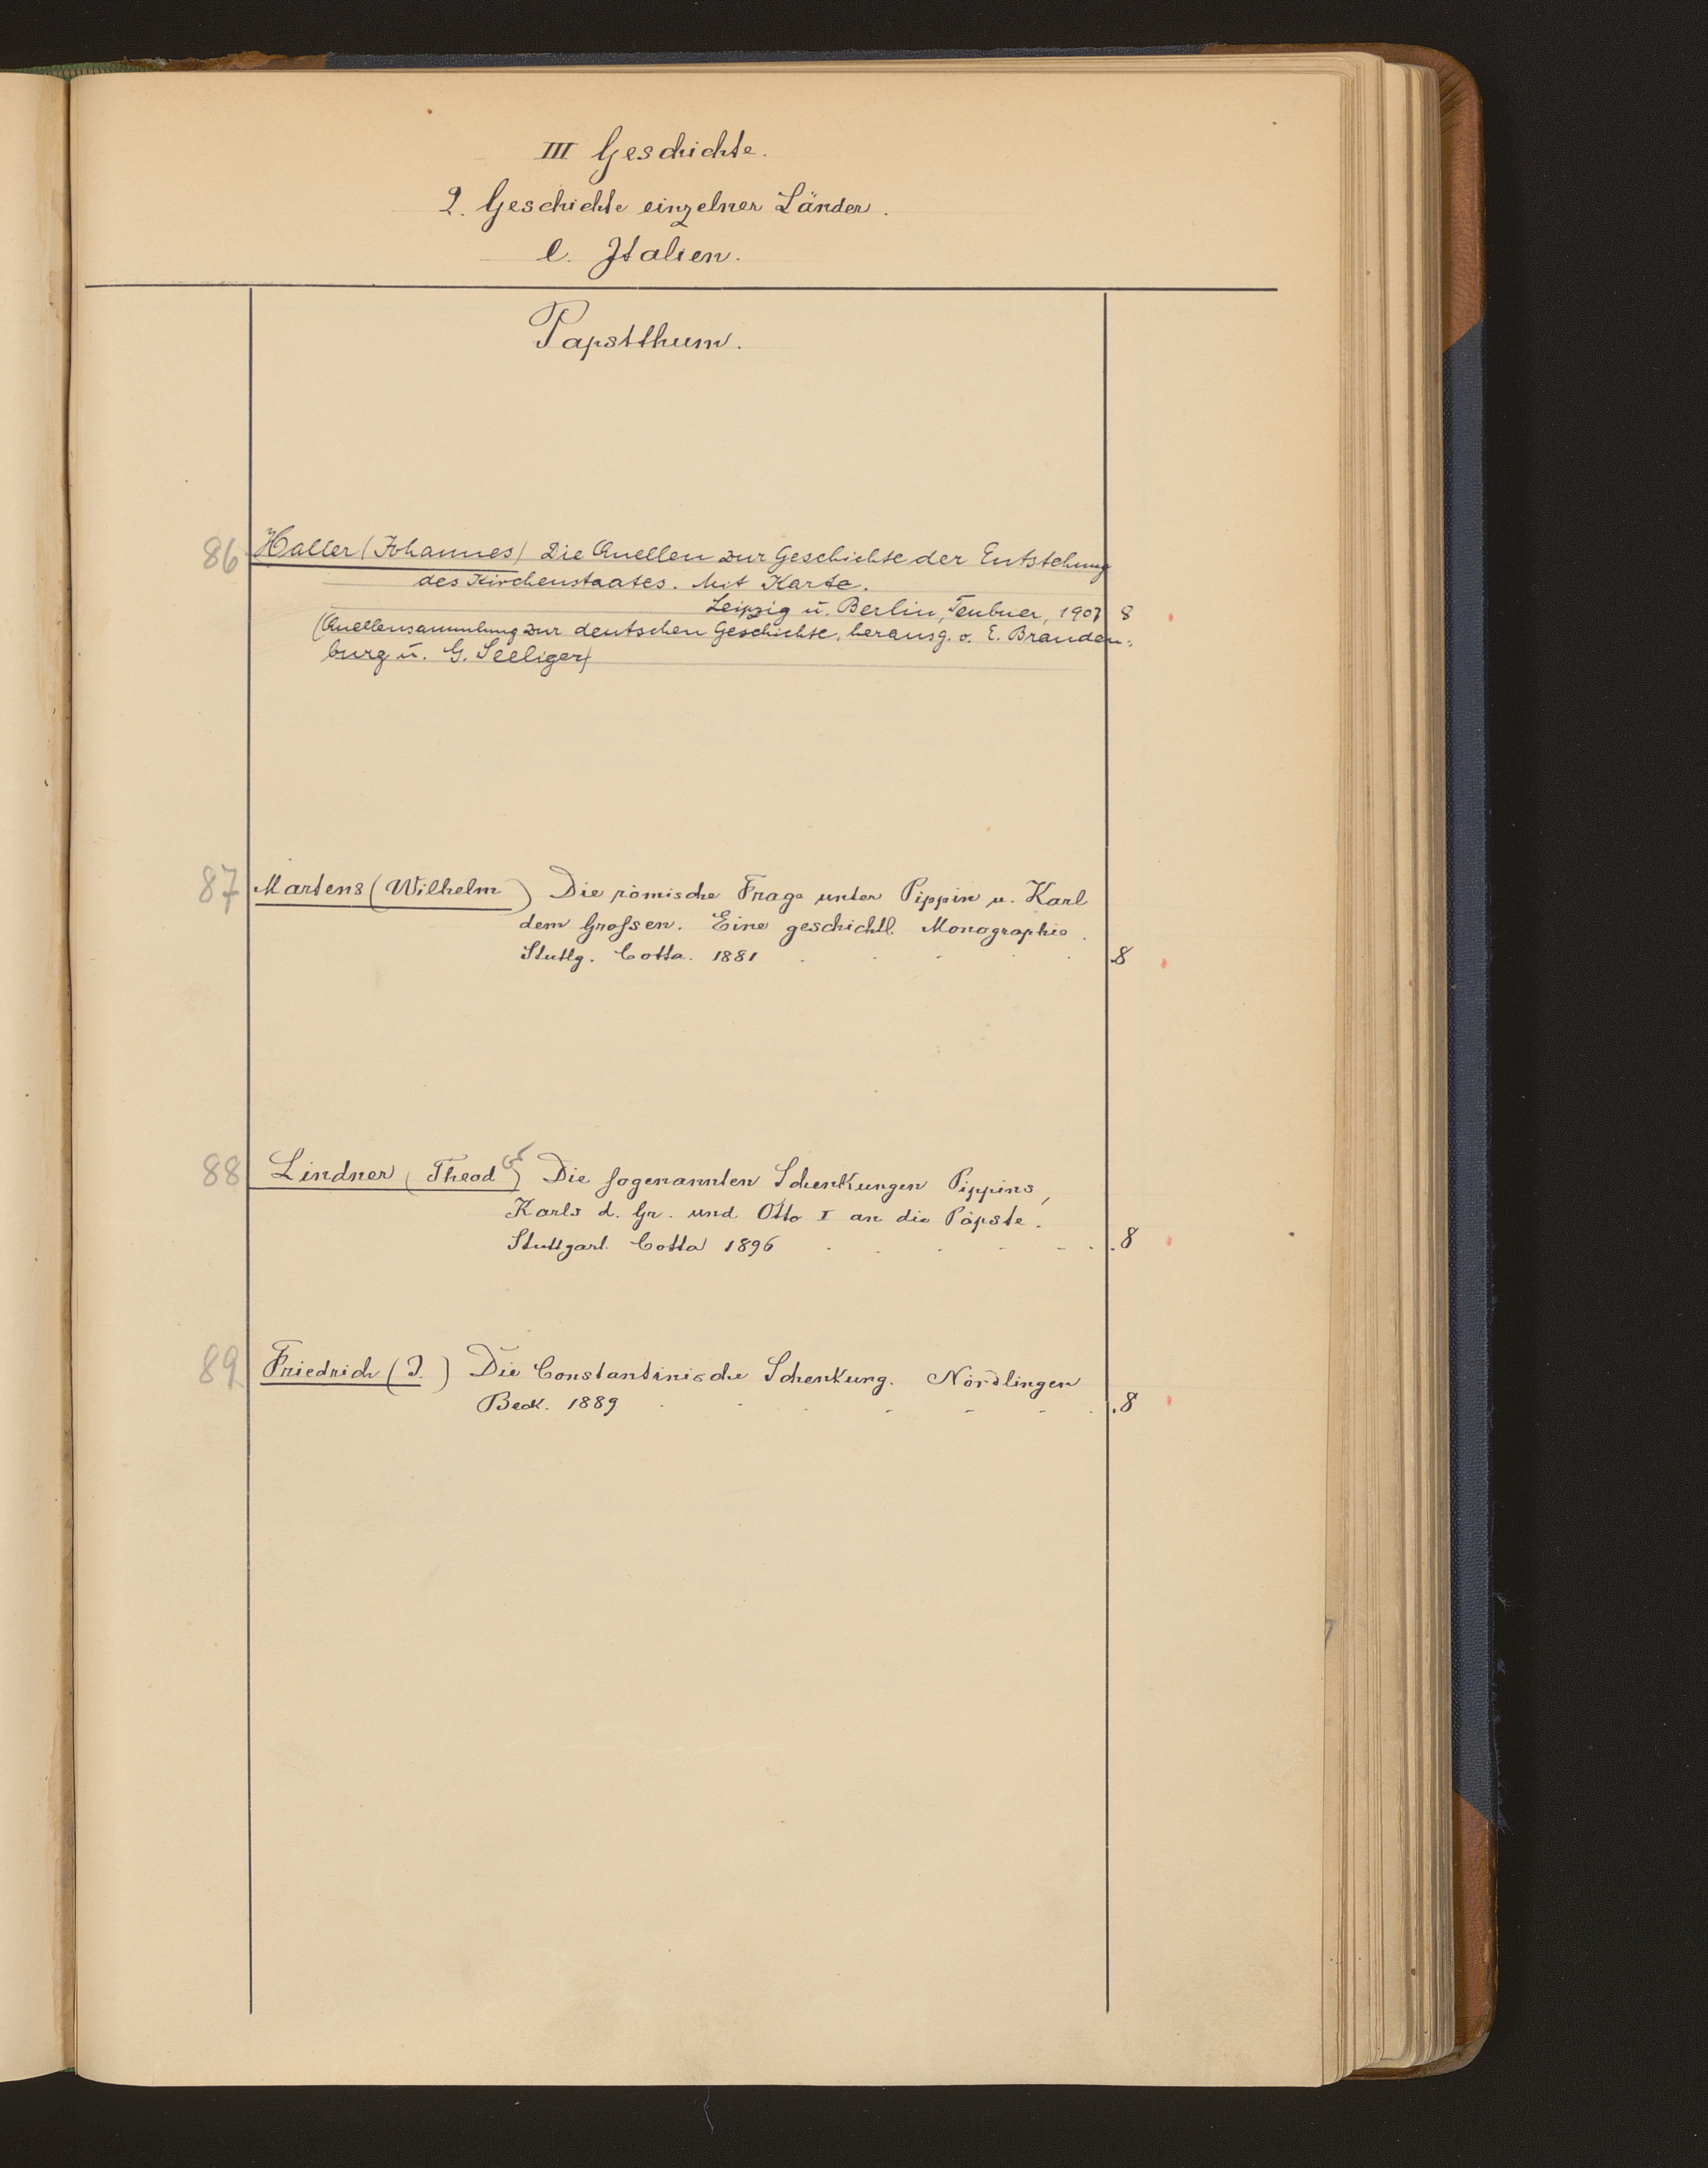 III Geschichte.
2. Geschichte einzelner Länder.
l. Italien.
Papstthum.
86 Haller (Johannes) Die Quellen zur Geschichte der Entstehung
des Kirchenstaates. Mit Karte.
Leipzig u. Berlin, Teubner, 1907 8
(Quellensammlung zur deutschen Geschichte, herausg. v. E. Branden-
burg u. G. Seeliger)
87 Martens (Wilhelm) Die römische Frage unter Pippin u. Karl
dem Großen. Eine geschichtl. Monographie.
Stuttg. Cotta. 1881 . . . . . 8
88 Lindner (Theod) Die sogenannten Schenkungen Pippins,
Karls d. Gr. und Otto I an die Päpste.
Stuttgart. Cotta 1896 . . . . . . 8
89 Friedrich (J.) Die Constantinische Schenkung. Nördlingen
Beck. 1889 . . . . . . . 8